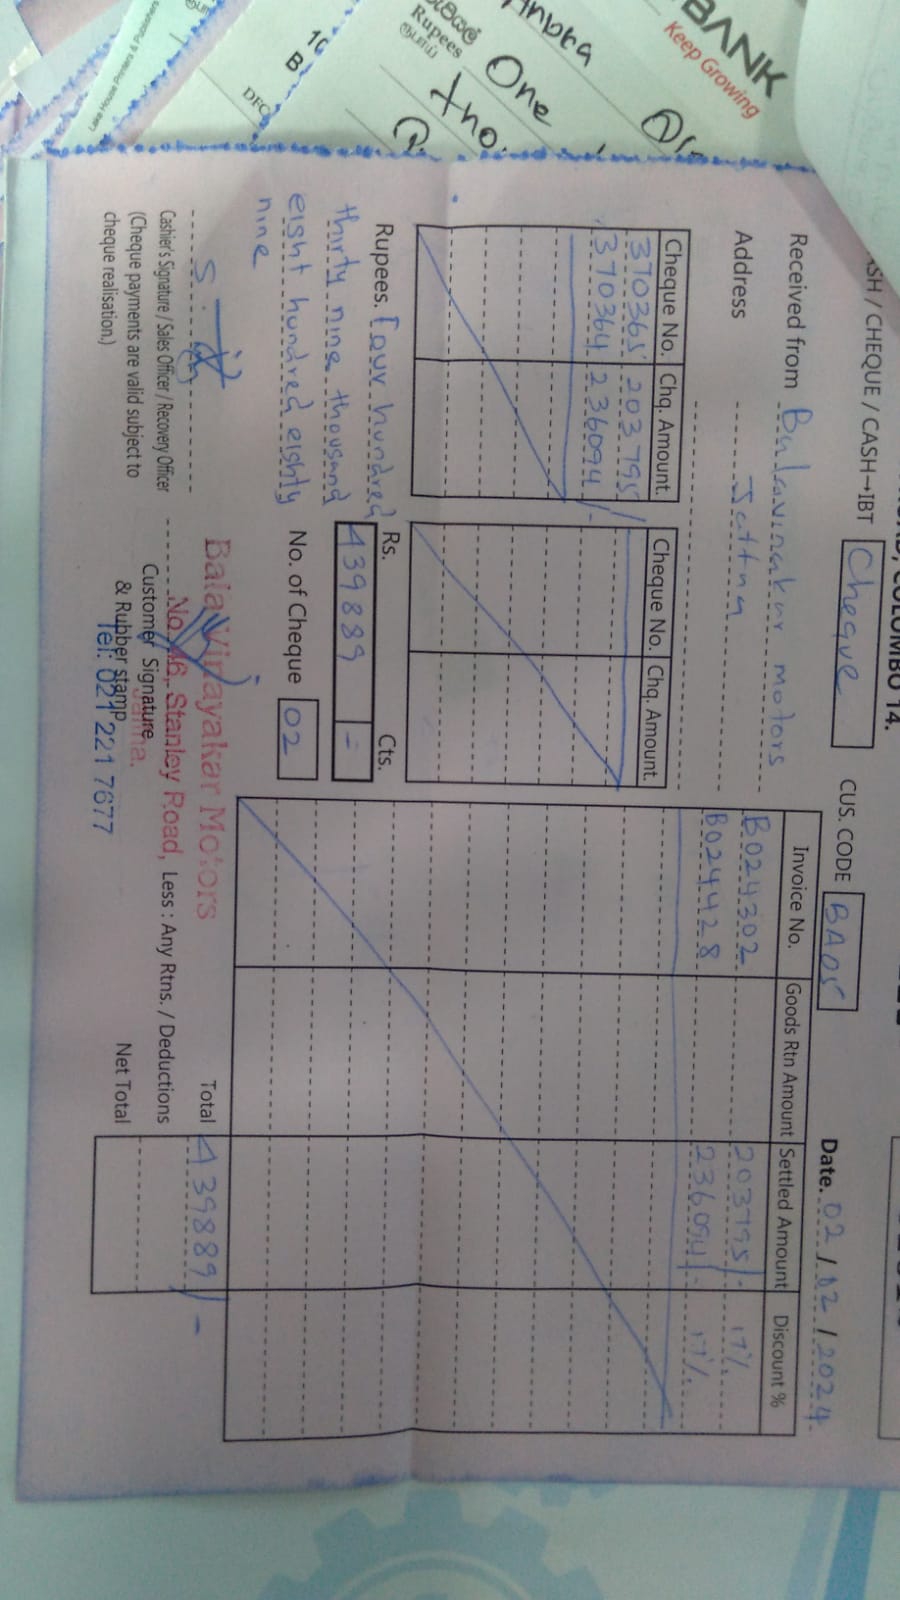 BANK
Keep Growing
රුපියල්
Rupees
ரூபாய்
One
Lake House Printers & Publishers
COLOMBO 14.
CASH / CHEQUE / CASH→IBT Cheque CUS. CODE BA05
Date. 02 / 12 / 2024
Received from Balavinakar motors
Address Jaffna
Cheque No. Chq. Amount.
370365 203795/
370364 236094/-
Cheque No. Chq. Amount.
Invoice No. Goods Rtn Amount Settled Amount Discount %
B024302 203795/- 17%
B024428 236094/- 17%
Rupees. Four hundred
thirty nine thousand
eight hundred eighty
nine
Rs. Cts.
439889 -
No. of Cheque 02
Total 439889/-
Less : Any Rtns. / Deductions
Net Total
Cashier's Signature / Sales Officer / Recovery Officer
(Cheque payments are valid subject to
cheque realisation.)
Customer Signature
& Rubber stamp
Bala Vinayakar Motors
No. 46, Stanley Road,
Jaffna.
Tel: 021 221 7677